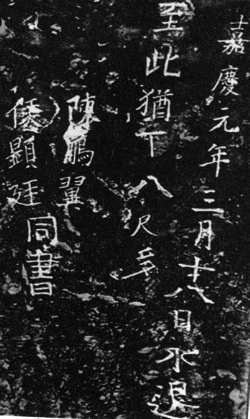 嘉慶元年三月十八日水退
至此猶下八尺多
陳鵬翼
倭顯廷同書